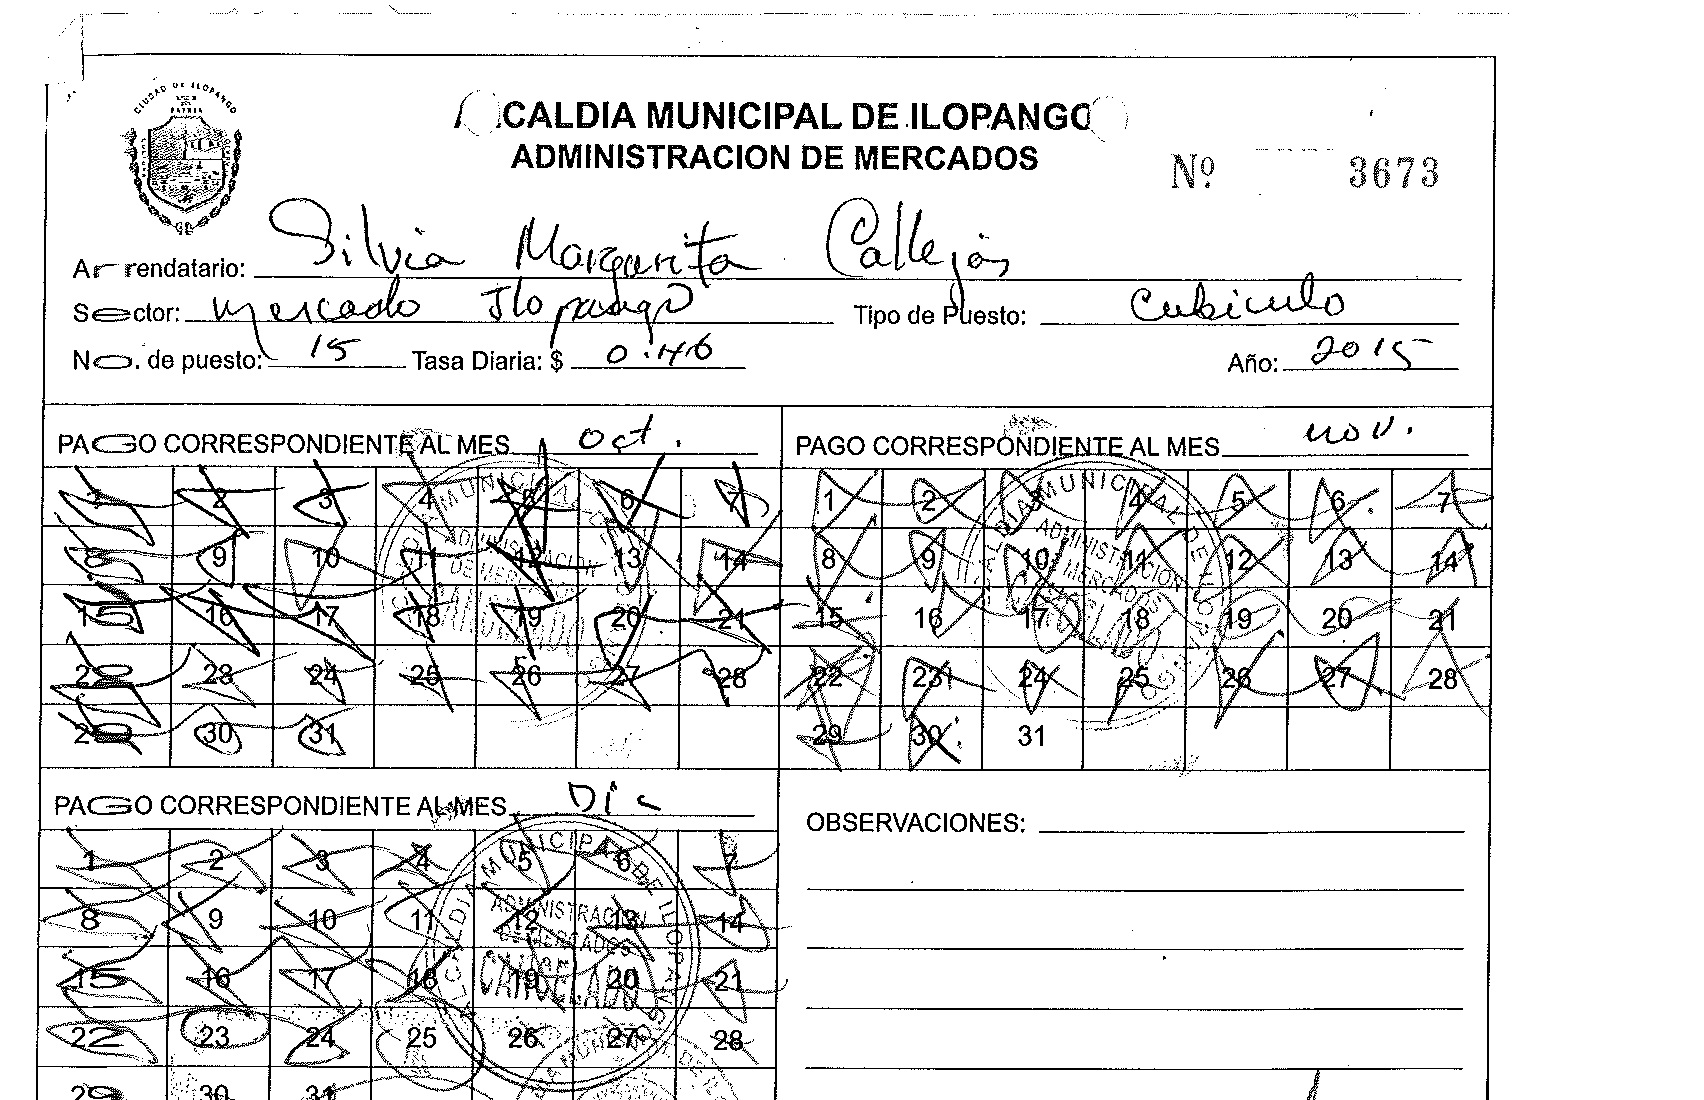 CIUDAD DE ILOPANGO
ALCALDIA MUNICIPAL DE ILOPANGO
ADMINISTRACION DE MERCADOS
Nº 3673
Arrendatario: Silvia Margarita Callejas
Sector: Mercado Ilopango Tipo de Puesto: Cubiculo
No. de puesto: 15 Tasa Diaria: $ 0.46 Año: 2015
PAGO CORRESPONDIENTE AL MES oct.
1 2 3 4 5 6 7
8 9 10 11 12 13 14
15 16 17 18 19 20 21
22 23 24 25 26 27 28
29 30 31
PAGO CORRESPONDIENTE AL MES nov.
1 2 3 4 5 6 7
8 9 10 11 12 13 14
15 16 17 18 19 20 21
22 23 24 25 26 27 28
29 30 31
PAGO CORRESPONDIENTE AL MES Dic
1 2 3 4 5 6 7
8 9 10 11 12 13 14
15 16 17 18 19 20 21
22 23 24 25 26 27 28
29 30 31
ALCALDIA MUNICIPAL DE ILOPANGO
ADMINISTRACION
DE MERCADOS
CANCELADO
OBSERVACIONES: